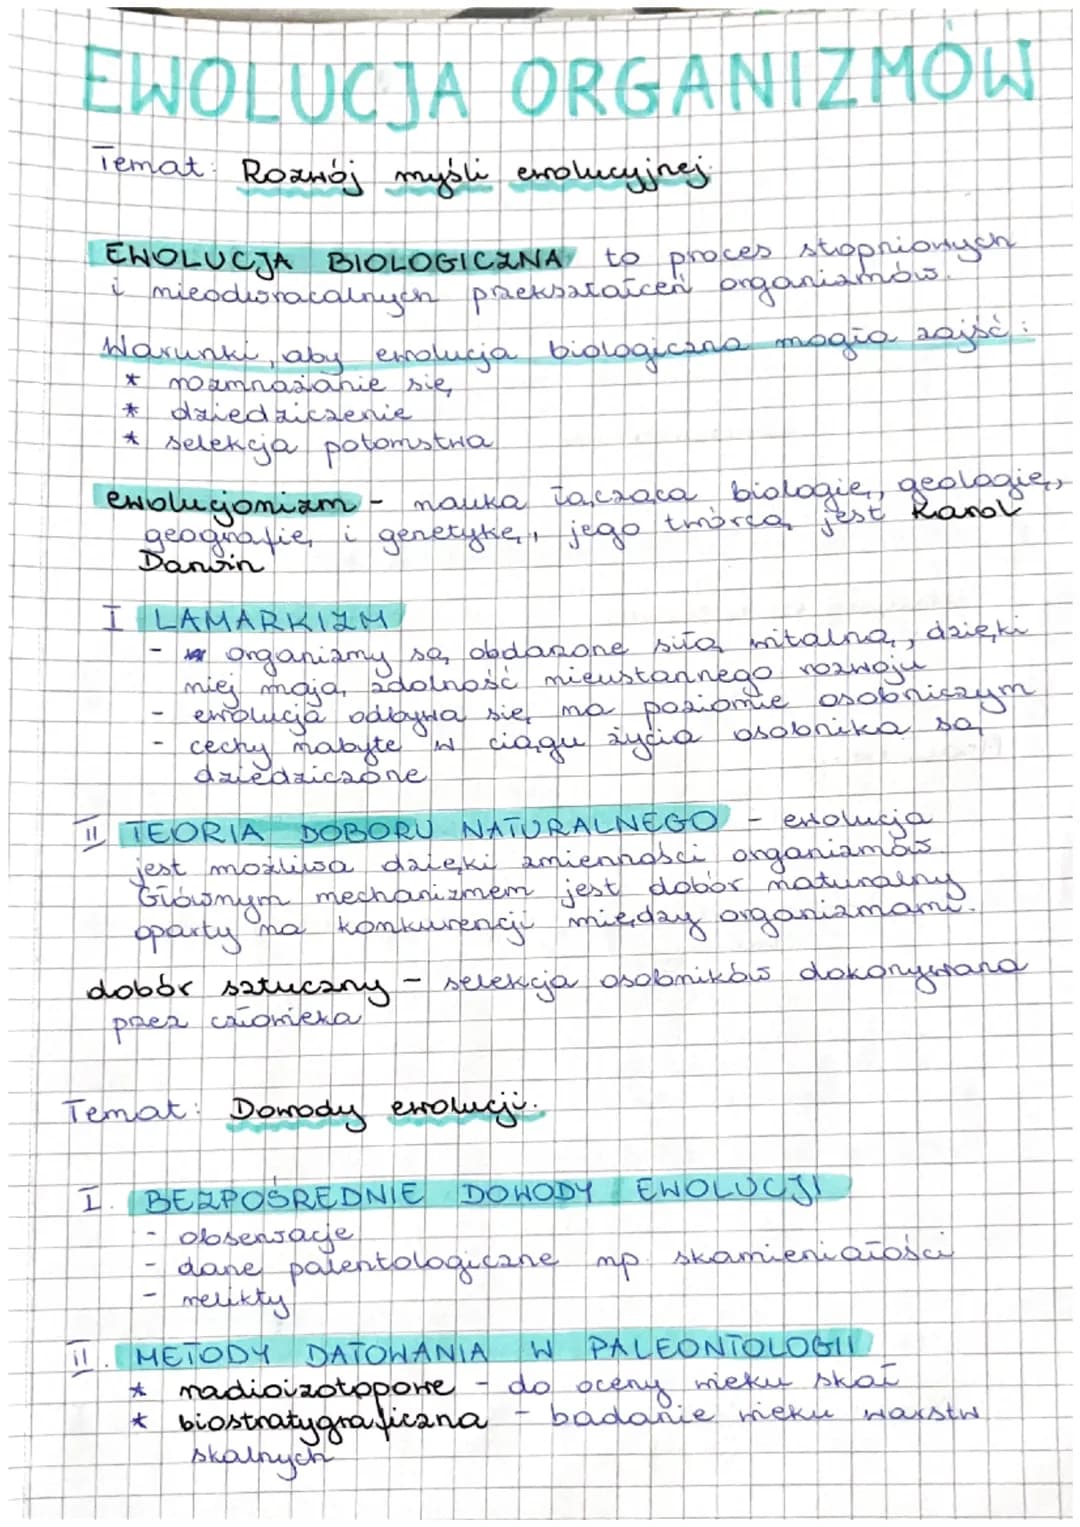 EWOLUCJA ORGANIZMÓW
Temat: Rozwój myśli ewolucyjnej.
EWOLUCJA BIOLOGICZNA to proces stopniowych
i nieodwracalnych przekształceń organizmów.
Warunki, aby ewolucja biologiczna mogła zajść:
* rozmnażanie się
* dziedziczenie
* selekcja potomstwa
ewolucjonizm - nauka łącząca biologię, geologię,
geografię i genetykę, jego twórcą jest Karol
Darwin
I LAMARKIZM
- organizmy są obdarzone siłą witalną, dzięki
niej mają zdolność nieustannego rozwoju
- ewolucja odbywa się na poziomie osobniczym
- cechy nabyte w ciągu życia osobnika są
dziedziczone
II TEORIA DOBORU NATURALNEGO - ewolucja
jest możliwa dzięki zmienności organizmów.
Głównym mechanizmem jest dobór naturalny
oparty na konkurencji między organizmami.
dobór sztuczny - selekcja osobników dokonywana
przez człowieka
Temat: Dowody ewolucji.
I. BEZPOŚREDNIE DOWODY EWOLUCJI
- obserwacje
- dane palentologiczne np. skamieniałości
- relikty
II. METODY DATOWANIA W PALEONTOLOGII
* radioizotopowe - do oceny wieku skał
* biostratygraficzna - badanie wieku warstw
skalnych